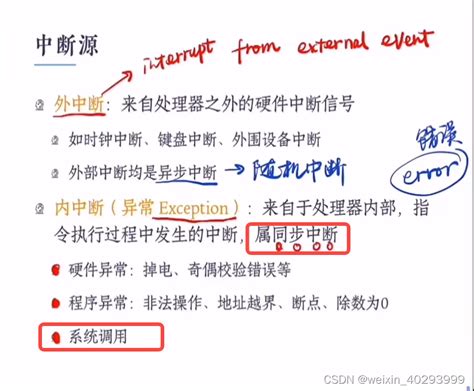 中断源
interrupt from external event
外中断：来自处理器之外的硬件中断信号
如时钟中断、键盘中断、外围设备中断
错误
外部中断均是异步中断 → 随机中断
error
内中断（异常 Exception）：来自于处理器内部，指
令执行过程中发生的中断，属同步中断
硬件异常：掉电、奇偶校验错误等
程序异常：非法操作、地址越界、断点、除数为0
系统调用
CSDN @weixin_40293999